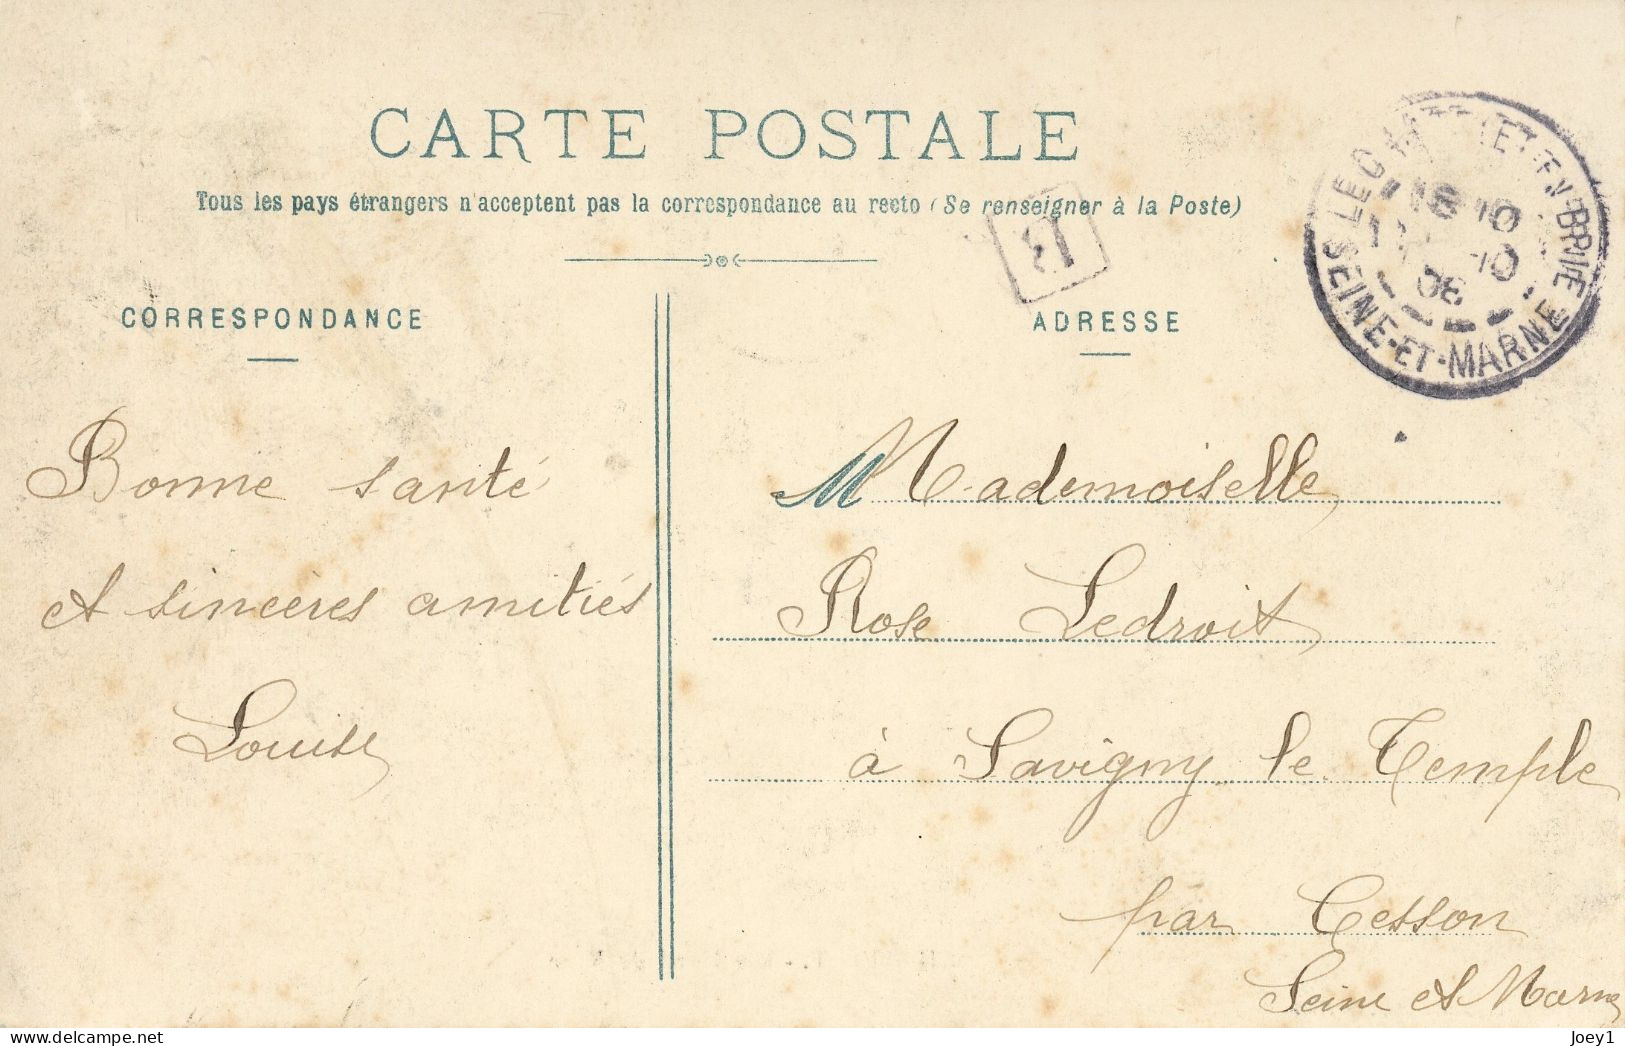 CARTE POSTALE
Tous les pays étrangers n'acceptent pas la correspondance au recto (Se renseigner à la Poste)
CORRESPONDANCE
ADRESSE
LE CHATELET-EN-BRIE
08
SEINE-ET-MARNE
13
Bonne santé
et sincères amitiés
Louise
M Mademoiselle
Rose Ledroit
à Savigny le Temple
par Cesson
Seine et Marne
Joey1